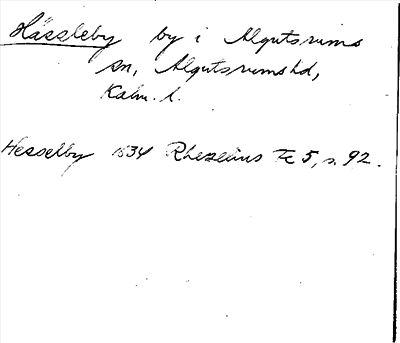 Hässleby by i Algutsrums
sn, Algutsrums hd,
Kalm. l.
Hesselby 1634 Rhezelius Fc 5, s. 92.